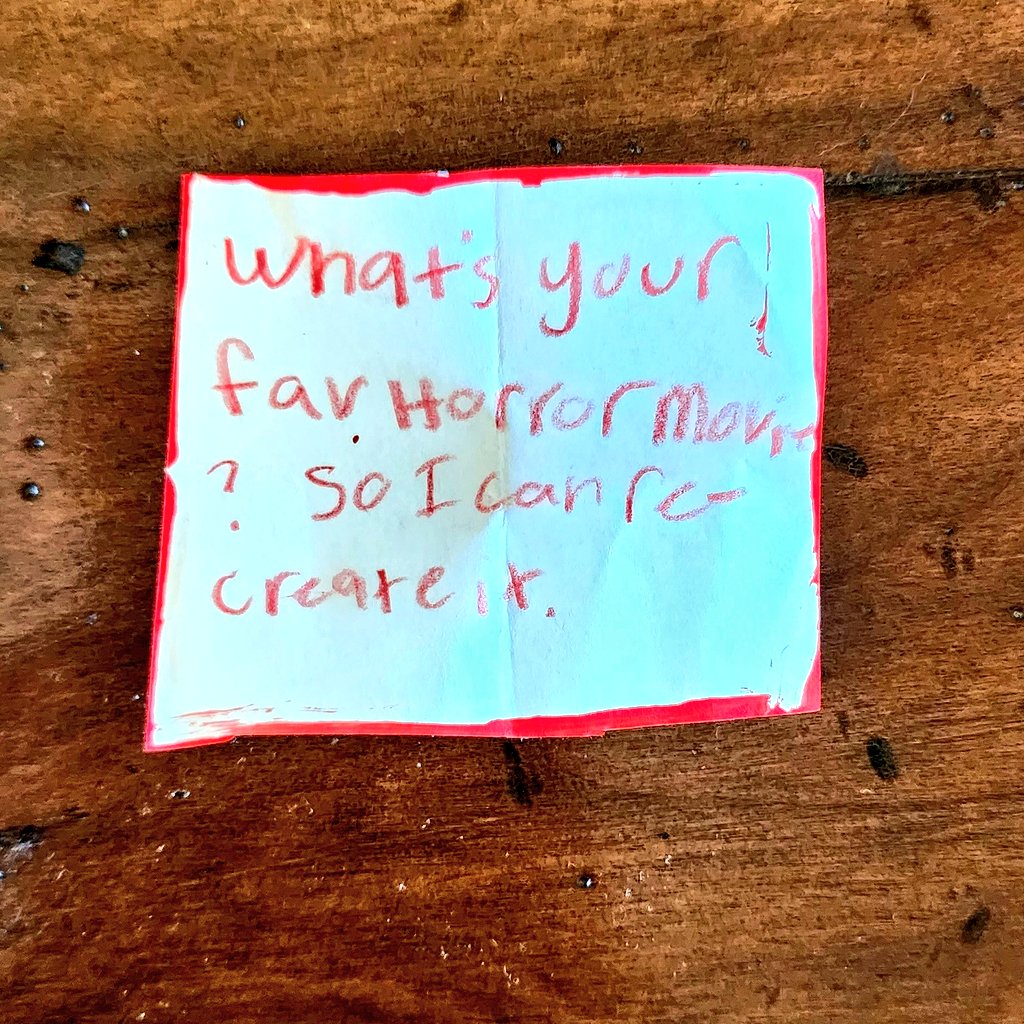 What's your
fav Horror Movie
? So I can re-
create it.